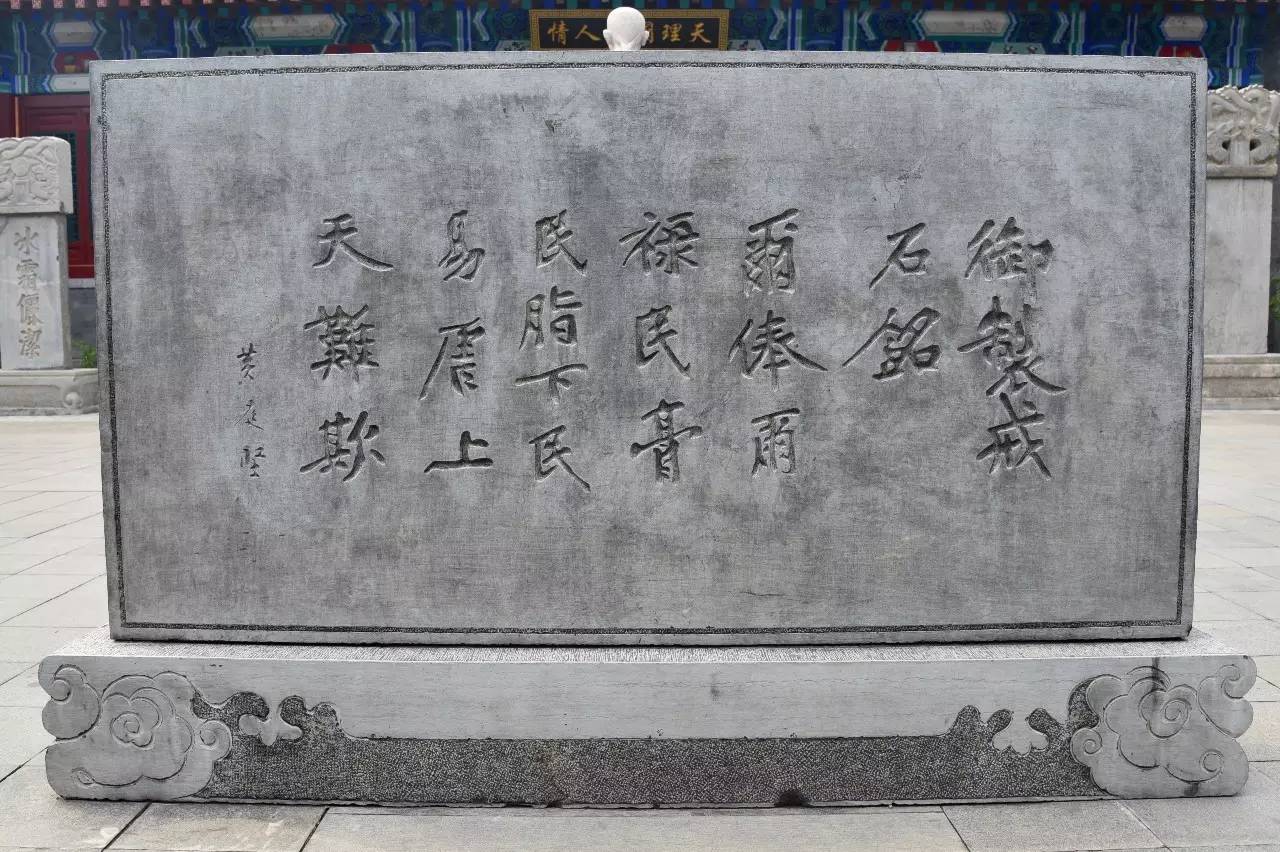 天理人情
御製戒
石銘
爾俸爾
禄民膏
民脂下民
易虐上
天難欺
黄庭堅
氷霜儷潔